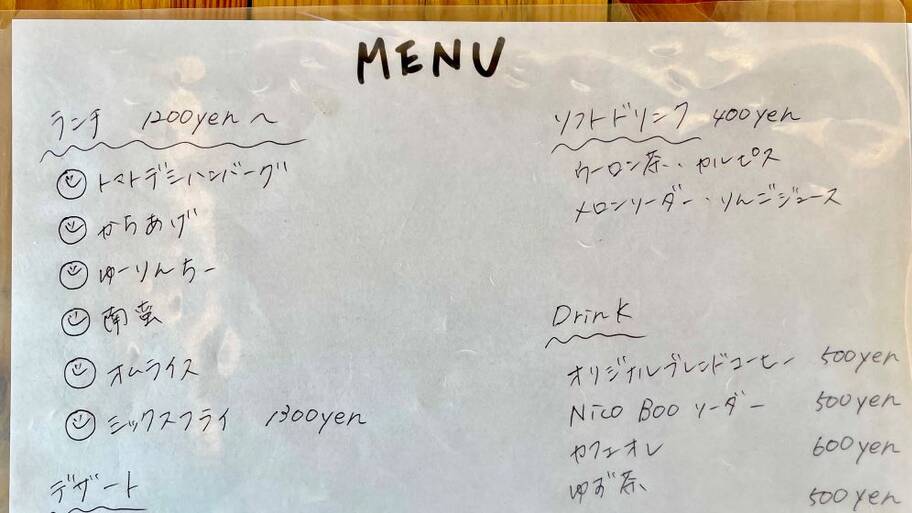 MENU
ランチ 1200yen～
トマトデミハンバーグ
からあげ
ゆーりんちー
南蛮
オムライス
ミックスフライ 1300yen
デザート
ソフトドリンク 400yen
ウーロン茶・カルピス
メロンソーダー・りんごジュース
Drink
オリジナルブレンドコーヒー 500yen
Nico Boo ソーダー 500yen
カフェオレ 600yen
ゆず茶 500yen